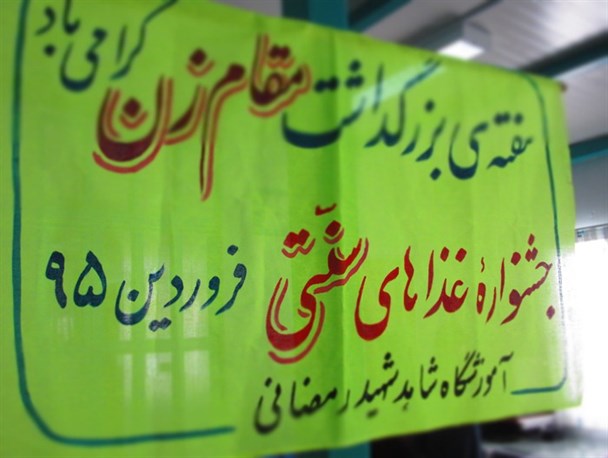 هفته‌ی بزرگداشت مقام زن گرامی باد
جشنوارهٔ غذاهای سنّتی فروردین ۹۵
آموزشگاه شاهد شهید رمضانی